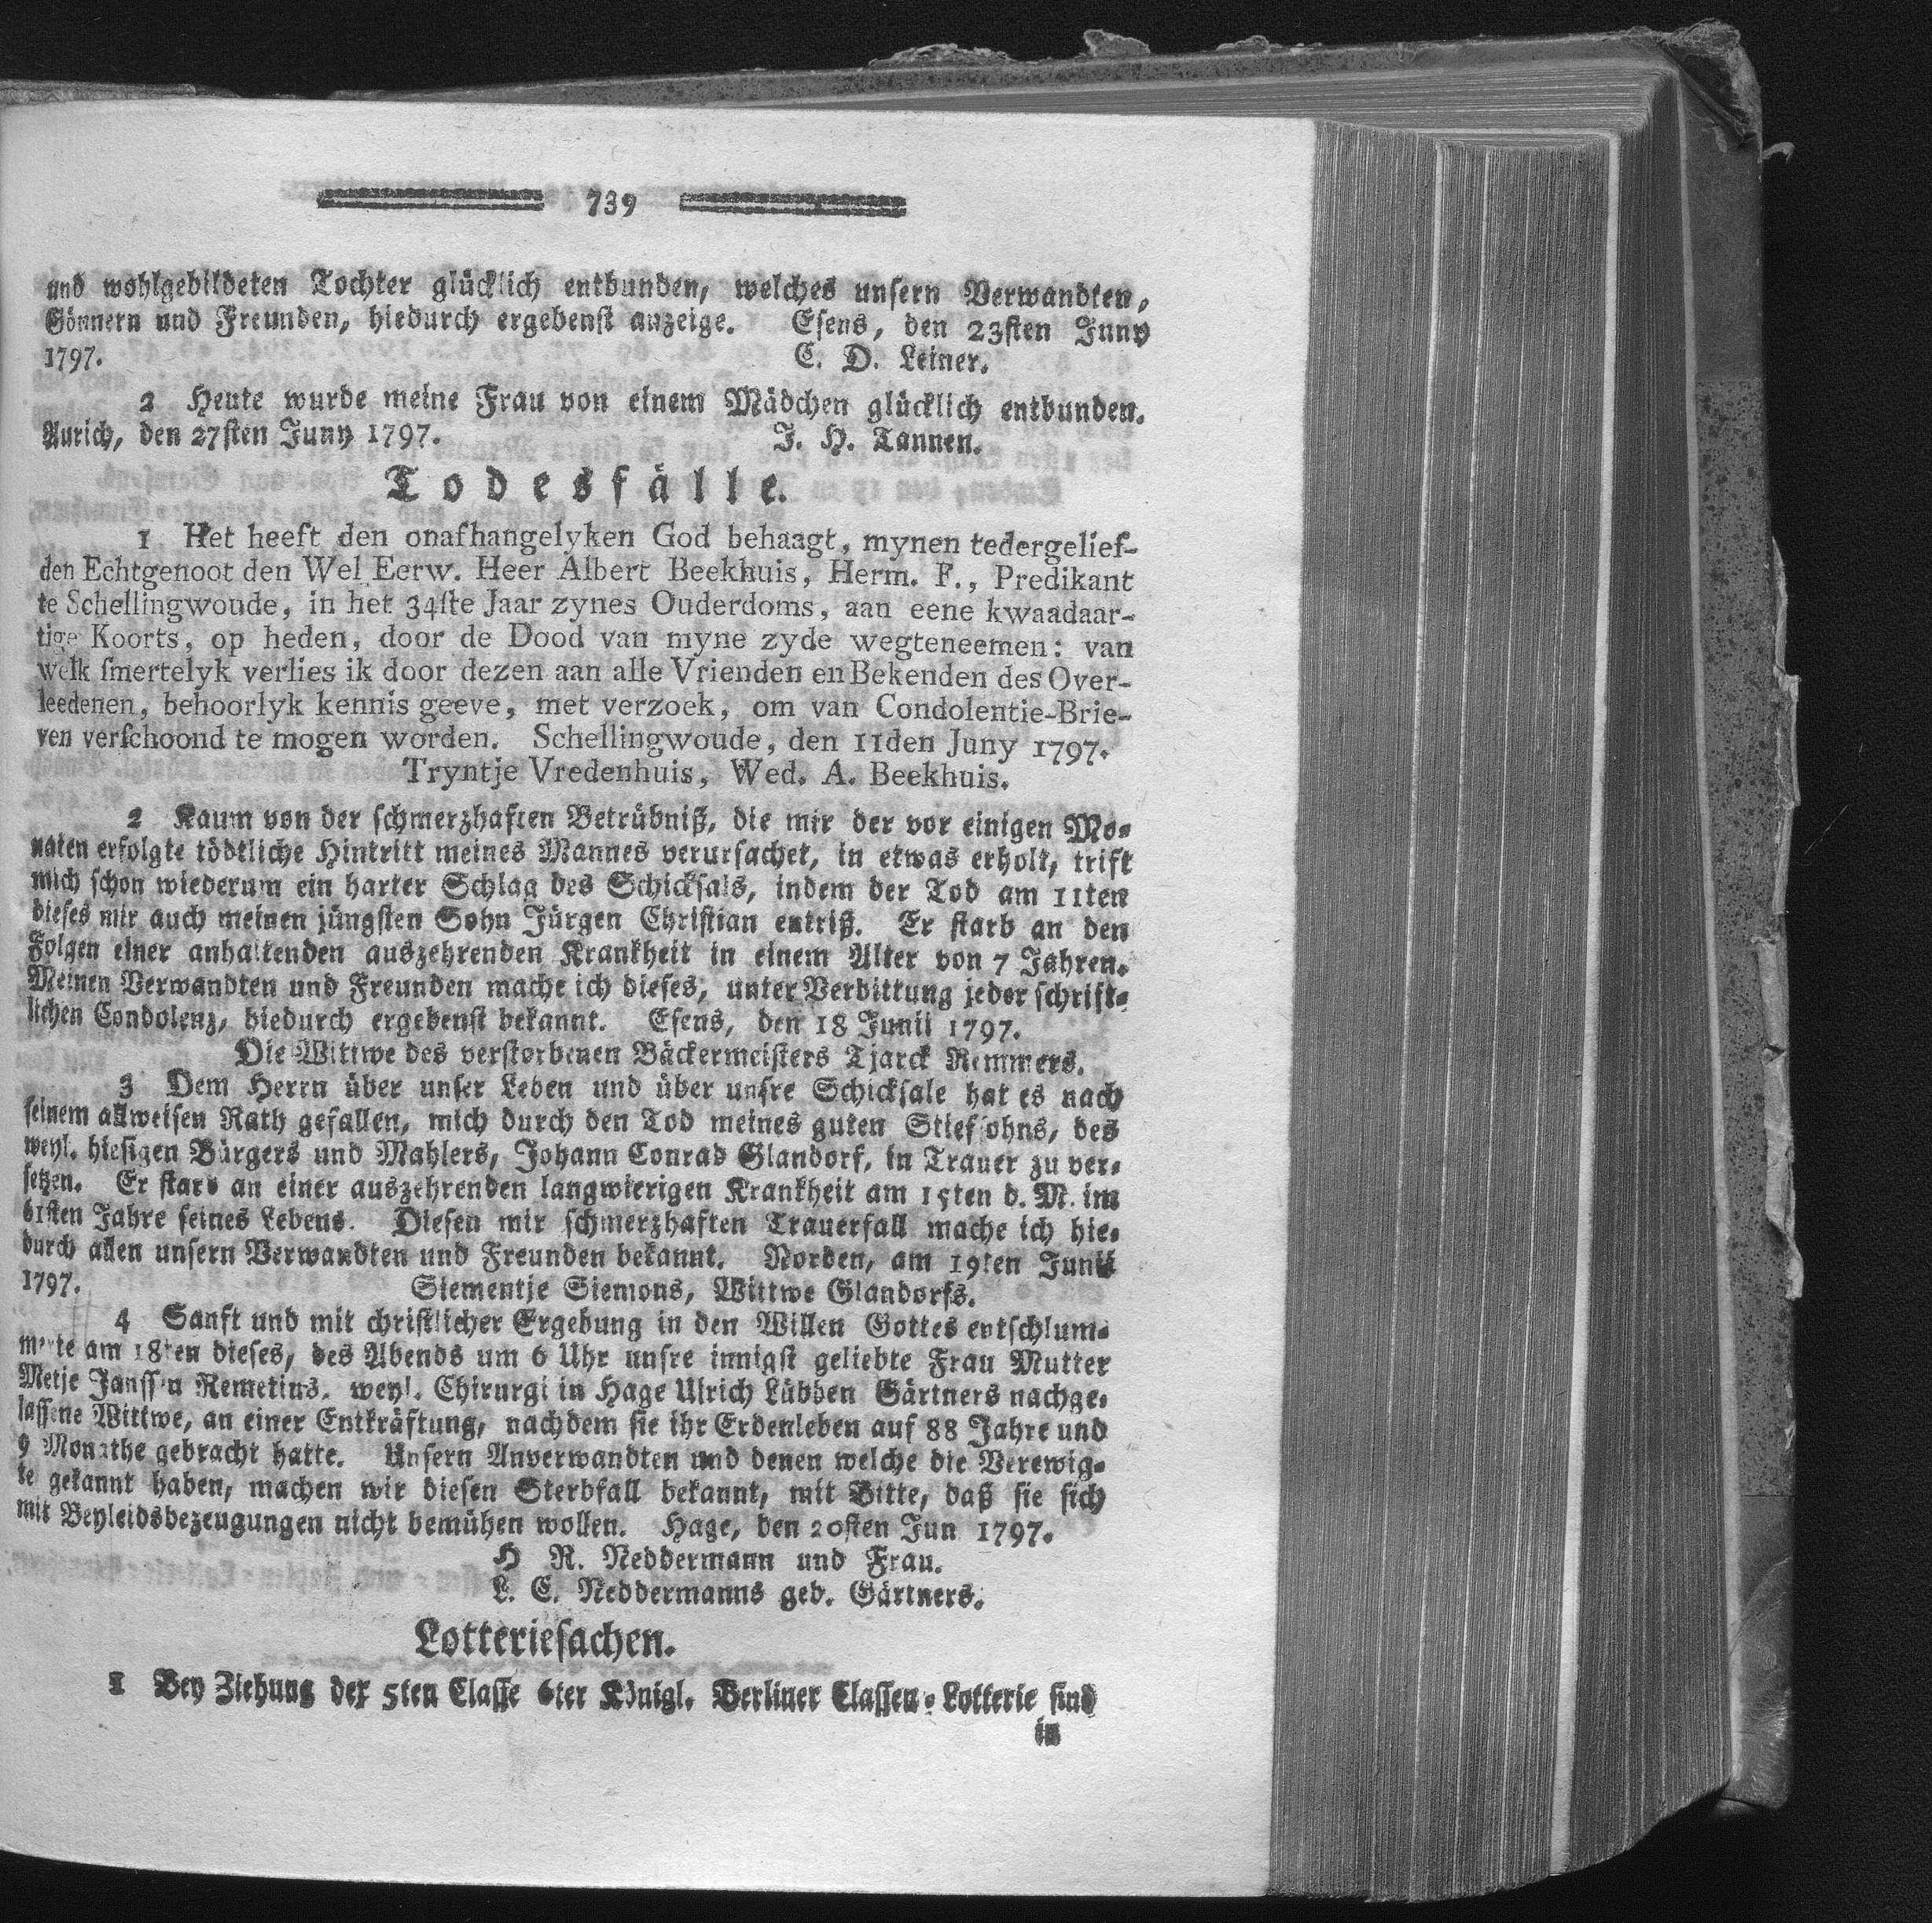 739
und wohlgebildeten Tochter glücklich entbunden, welches unsern Verwandten,
Gönnern und Freunden, hiedurch ergebenst anzeige. Esens, den 23sten Juny
1797. C. D. Leiner.
2 Heute wurde meine Frau von einem Mädchen glücklich entbunden.
Aurich, den 27sten Juny 1797. J. H. Tannen.
Todesfälle.
1 Het heeft den onafhangelyken God behaagt, mynen tedergelief-
den Echtgenoot den Wel Eerw. Heer Albert Beekhuis, Herm. F., Predikant
te Schellingwoude, in het 34ste Jaar zynes Ouderdoms, aan eene kwaadaar-
tige Koorts, op heden, door de Dood van myne zyde wegteneemen: van
welk smertelyk verlies ik door dezen aan alle Vrienden en Bekenden des Over-
leedenen, behoorlyk kennis geeve, met verzoek, om van Condolentie-Brie-
ven verschoond te mogen worden. Schellingwoude, den 11den Juny 1797.
Tryntje Vredenhuis, Wed. A. Beekhuis.
2 Kaum von der schmerzhaften Betrübniß, die mir der vor einigen Mo-
naten erfolgte tödtliche Hintritt meines Mannes verursachet, in etwas erholt, trift
mich schon wiederum ein harter Schlag des Schicksals, indem der Tod am 11ten
dieses mir auch meinen jüngsten Sohn Jürgen Christian entriß. Er starb an den
Folgen einer anhaltenden auszehrenden Krankheit in einem Alter von 7 Jahren.
Meinen Verwandten und Freunden mache ich dieses, unter Verbittung jeder schrift-
lichen Condolenz, hiedurch ergebenst bekannt. Esens, den 18 Junii 1797.
Die Wittwe des verstorbenen Bäckermeisters Tjarck Remmers.
3 Dem Herrn über unser Leben und über unsre Schicksale hat es nach
seinem allweisen Rath gefallen, mich durch den Tod meines guten Stiefsohns, des
weyl. hiesigen Bürgers und Mahlers, Johann Conrad Glandorf, in Trauer zu ver-
setzen. Er starb an einer auszehrenden langwierigen Krankheit am 15ten d. M. im
61sten Jahre seines Lebens. Diesen mir schmerzhaften Trauerfall mache ich hie-
durch allen unsern Verwandten und Freunden bekannt. Norden, am 19ten Junii
1797. Siementje Siemons, Wittwe Glandorfs.
4 Sanft und mit christlicher Ergebung in den Willen Gottes entschlum-
merte am 18ten dieses, des Abends um 6 Uhr unsre innigst geliebte Frau Mutter
Metje Janssen Remetins, weyl. Chirurgi in Hage Ulrich Lübben Gärtners nachge-
lassene Wittwe, an einer Entkräftung, nachdem sie ihr Erdenleben auf 88 Jahre und
9 Monathe gebracht hatte. Unsern Anverwandten und denen welche die Verewig-
te gekannt haben, machen wir diesen Sterbfall bekannt, mit Bitte, daß sie sich
mit Beyleidsbezeugungen nicht bemühen wollen. Hage, den 20sten Jun 1797.
H R. Neddermann und Frau.
L. E. Neddermanns geb. Gärtners.
Lotteriesachen.
1 Bey Ziehung der 5ten Classe 6ter Königl. Berliner Classen-Lotterie sind
in